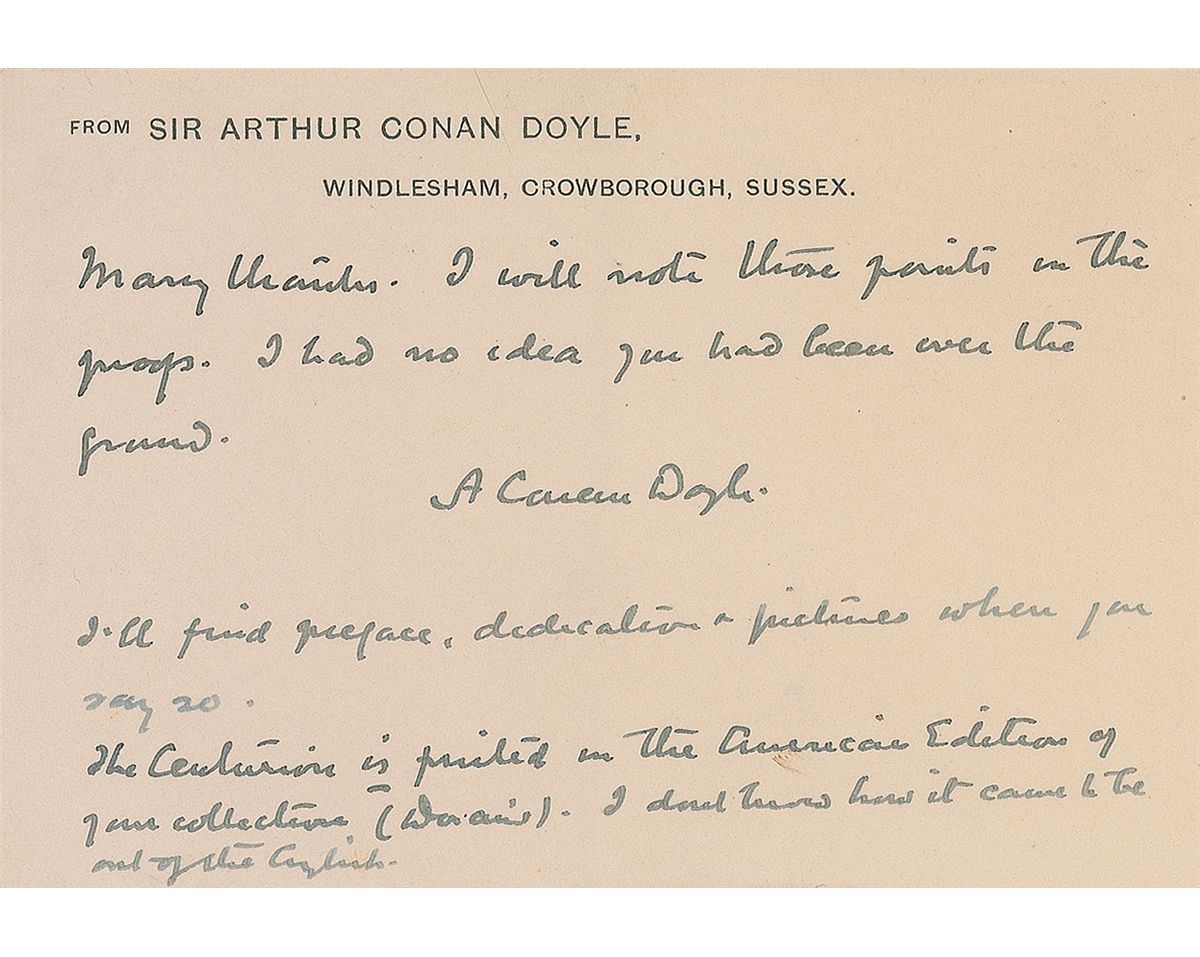 FROM SIR ARTHUR CONAN DOYLE,
WINDLESHAM, CROWBOROUGH, SUSSEX.
Many thanks. I will note those points in the
proofs. I had no idea you had been over the
ground.
A Conan Doyle.
I'll find preface, dedication & pictures when you
say so.
The Centurion is printed in the American Edition of
your collection (Doran's). I dont know how it came to be
out of the English.